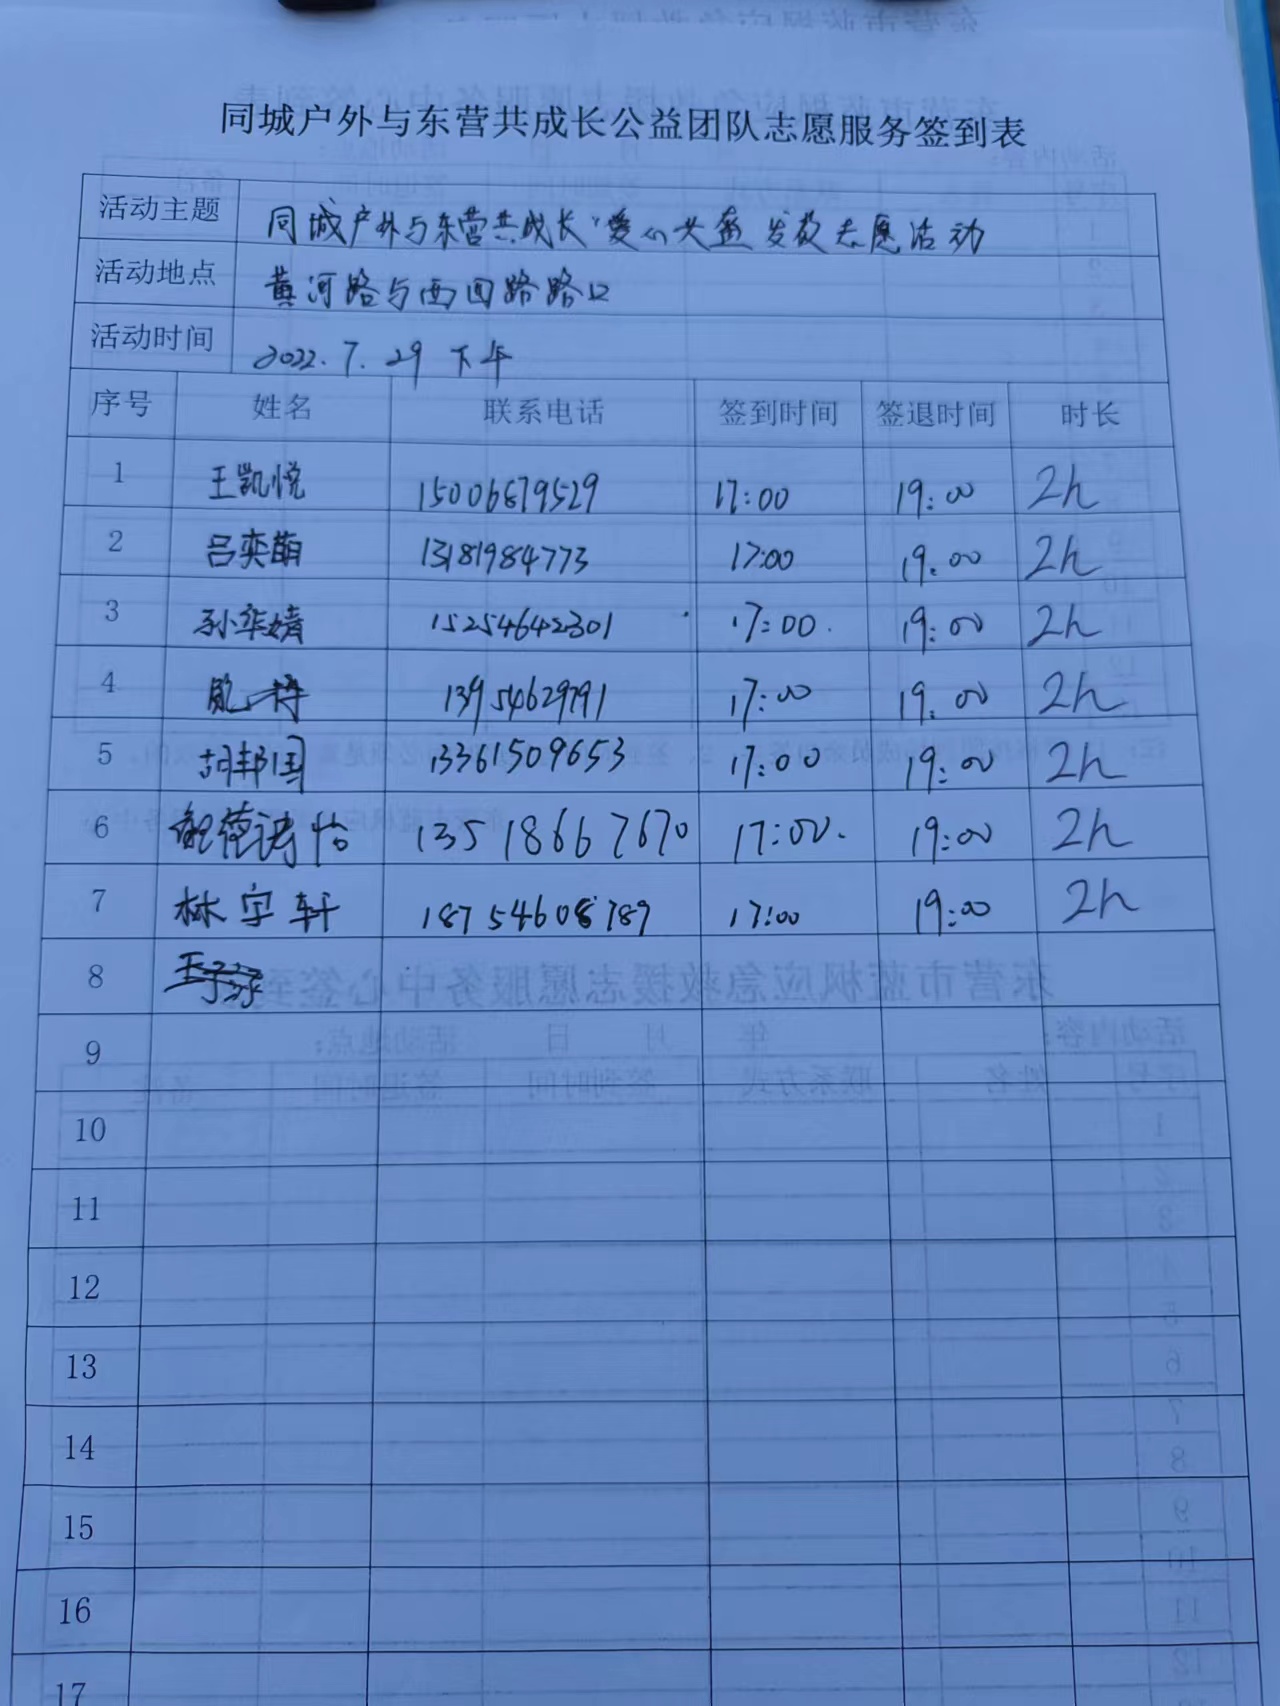 同城户外与东营共成长公益团队志愿服务签到表
活动主题 同城户外与东营共成长"爱心头盔 发放志愿活动
活动地点 黄河路与西四路路口
活动时间 2022.7.29 下午
序号 姓名 联系电话 签到时间 签退时间 时长
1 王凯悦 15006879529 17:00 19:00 2h
2 吕奕萌 13181984773 17:00 19:00 2h
3 孙华婧 15254642301 17:00 19:00 2h
4 13954629791 17:00 19:00 2h
5 胡邦国 13361509653 17:00 19:00 2h
6 13518667670 17:00 19:00 2h
7 林宇轩 18754608789 17:00 19:00 2h
8
9
10
11
12
13
14
15
16
17
东营市蓝枫应急救援志愿服务中心签到表
活动内容： 年 月 日 活动地点：
序号 姓名 联系方式 签到时间 签退时间 备注